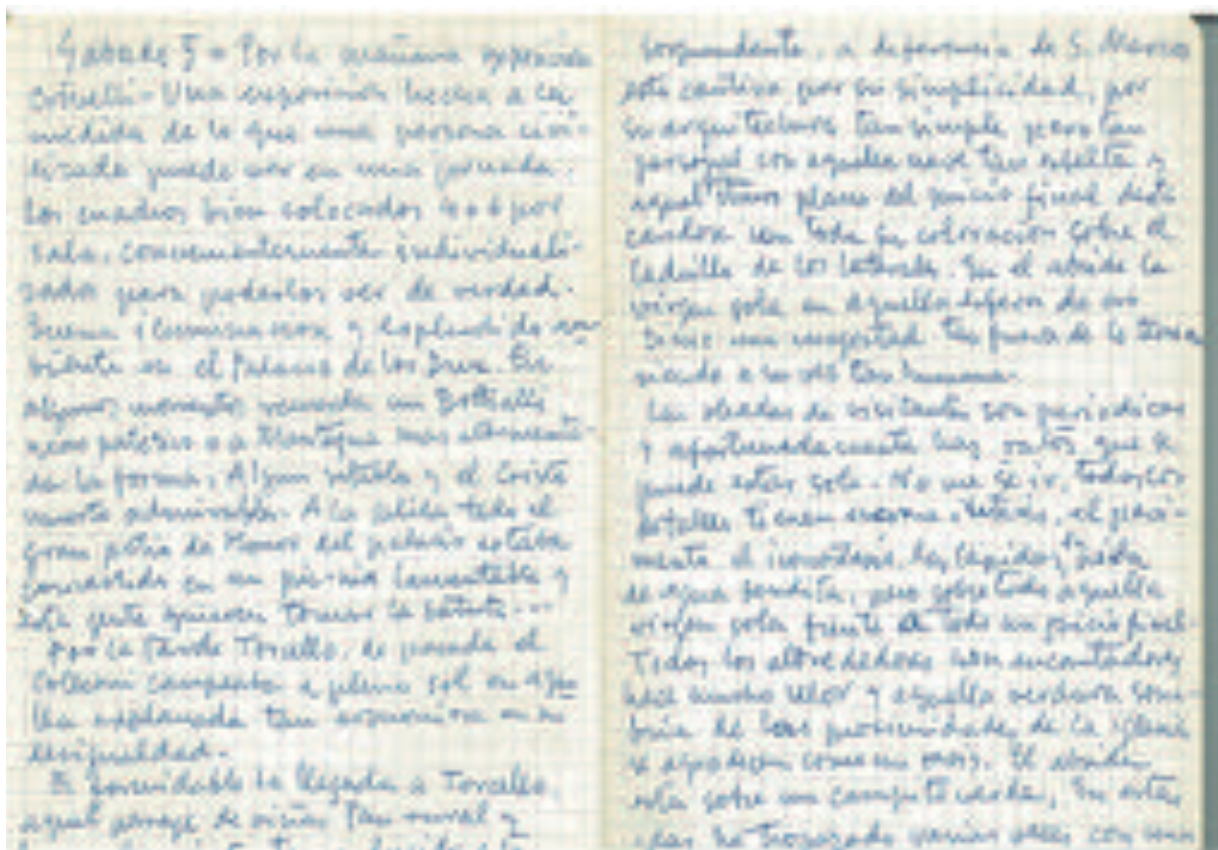 Sabado 5 = Por la mañana exposición
Una exposición hecha a la
medida de lo que una persona civi-
lizada puede ver en una jornada.
Los cuadros bien colocados 4 o 6 por
sala, convenientemente individuali-
zados para poderlos ver de verdad.
Buena iluminacion y esplendido am-
biente en el Palacio de los Dux. En
algunos momentos recuerda un Botticelli
menos o a Mantegna mas
de la forma. Algun retablo y el Cristo
muerto admirables. A la salida todo el
gran patio de Honor del palacio estaba
convertido en un pic-nic lamentable y
esta gente quieren tomar la
Por la tarde Torcello, de pasada el
Colleoni campeando a pleno sol en aque-
lla explanada tan en su
desigualdad.
Es formidable la llegada a Torcello,
aquel paraje de vision tan rural y
sorprendente, a diferencia de S. Marco
esta cautiva por su simplicidad, por
su arquitectura tan simple pero tan
personal con aquella nave tan esbelta y
aquel ultimo plano del juicio final
con toda su coloracion sobre el
ladrillo de los laterales. En el abside la
virgen sola en aquella de oro
tiene una majestad tan fuera de lo
siendo a su vez tan humana.
Las oleadas de visitantes son periodicas
y afortunadamente hay ratos que se
puede estar solo. No me se ir, todos los
detalles tienen interés, el pavi-
mento el iconostasio, las lapidas, la pila
de agua bendita, pero sobre todo aquella
virgen sola frente a todo un juicio final.
Todos los alrededores son encantadores
hace mucho calor y aquella verdura som-
bria de las proximidades de la iglesia
se agradecen como en mos. El abside
esta sobre un campo verde, En estas
he tropezado varias veces con una